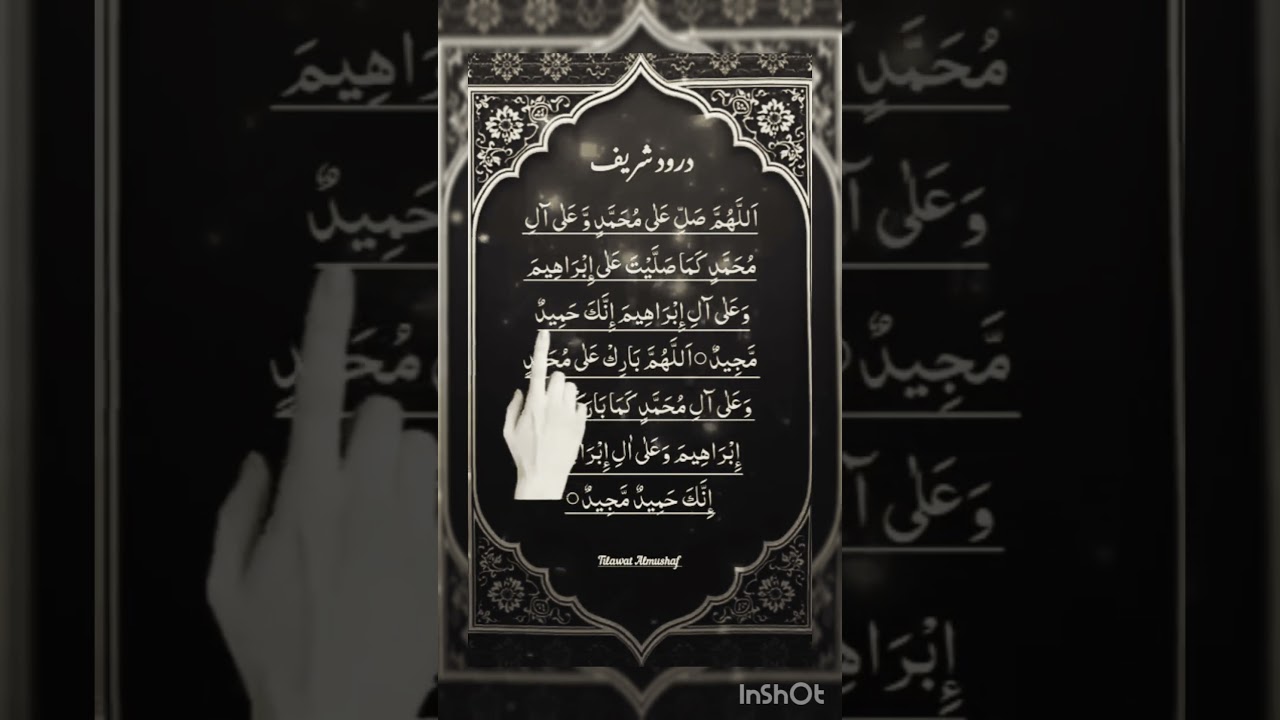 درود شریف
اَللَّهُمَّ صَلِّ عَلٰى مُحَمَّدٍ وَّ عَلٰى آلِ
مُحَمَّدٍ كَمَا صَلَّيْتَ عَلٰى إِبْرَاهِيمَ
وَعَلٰى آلِ إِبْرَاهِيمَ إِنَّكَ حَمِيدٌ
مَّجِيدٌ ○ اَللَّهُمَّ بَارِكْ عَلٰى
وَعَلٰى آلِ مُحَمَّدٍ كَمَا
إِبْرَاهِيمَ وَعَلٰى اٰلِ
إِنَّكَ حَمِيدٌ مَّجِيدٌ ○
Tilawat Almushaf
InShOt